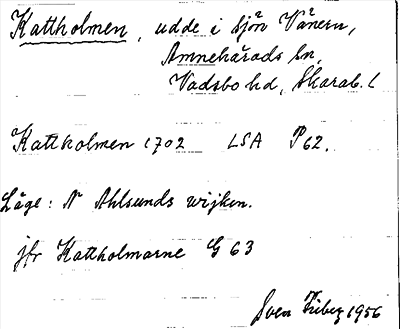 Kattholmen, udde i sjön Vänern,
Amnehärads sn,
Vadsbo hd, Skarab. l
Kattholmen 1702 LSA P62.
Läge: N Ahlsunds wijken.
jfr Kattholmarne G 63
Sven 1956